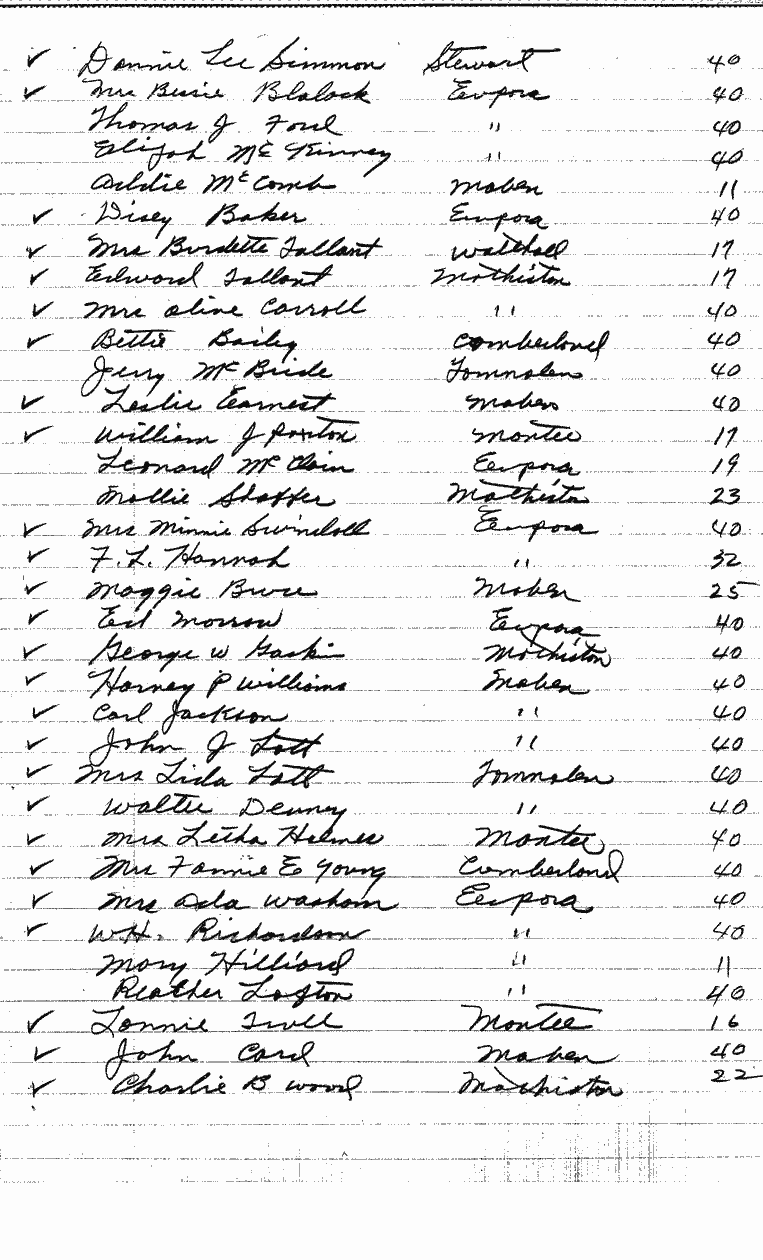 ✓ Donnie Lee Simmon Stewart 40
✓ Mrs Bessie Blalock Eupora 40
Thomas J Ford " 40
Elijah McKinney " 40
Addie McComb Maben 11
✓ Disey Baker Eupora 40
✓ Mrs Burdette Tallant Walthall 17
✓ Edward Tallant Mathiston 17
✓ Mrs Oline Carroll " 40
✓ Bettie Bailey Cumberland 40
Jerry McBride Tomnolen 40
✓ Leslie Earnest Maben 40
✓ William J Paxton Montee 17
Leonard McClain Eupora 19
Mollie Shaffer Mathiston 23
✓ Mrs Minnie Swindoll Eupora 40
✓ F.L. Hannah " 32
✓ Maggie Bruce Maben 25
✓ Ed Morrow Eupora 40
✓ George W Gaskin Mathiston 40
✓ Harney P Williams Maben 40
✓ Carl Jackson " 40
✓ John J Lott " 40
✓ Mrs Lida Lott Tomnolen 40
✓ Walter Denney " 40
✓ Mrs Letha Holmes Montee 40
✓ Mrs Fannie E Young Cumberland 40
✓ Mrs Ada Washam Eupora 40
✓ W.H. Richardson " 40
Mary Hilliard " 11
Reather Lofton " 40
✓ Lonnie Trull Montee 16
✓ John Card Maben 40
✓ Charlie B Wood Mathiston 22